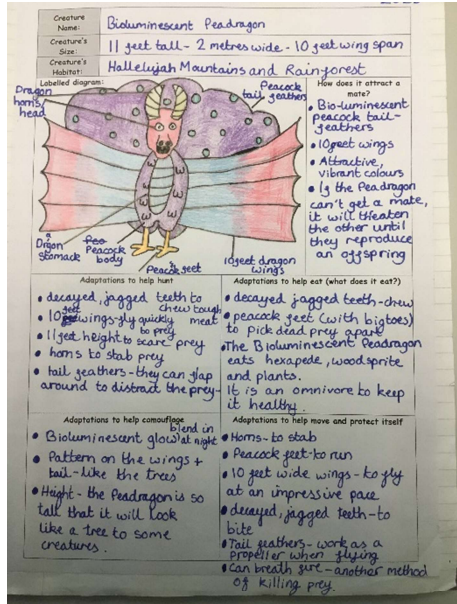 Creature Name: Bioluminescent Peadragon
Creature's Size: 11 feet tall - 2 metres wide - 10 feet wing span
Creature's Habitat: Hallelujah Mountains and Rainforest
Labelled diagram:
Dragon horns, head
Peacock tail feathers
Dragon Stomack
Peacock body
Peacock feet
10 feet dragon wings
How does it attract a mate?
• Bio-luminescent
peacock tail-
feathers
• 10 feet wings
• Attractive,
vibrant colours
• If the Peadragon
can't get a mate,
it will threaten
the other until
they reproduce
an offspring
Adaptations to help hunt
• decayed, jagged teeth to
chew tough meat
• 10 feet wings-fly quickly
to prey
• 11 feet height to scare prey
• horns to stab prey
• tail feathers-they can flap
around to distract the prey-
Adaptations to help eat (what does it eat?)
• decayed jagged teeth-chew
• peacock feet (with big toes)
to pick dead prey apart
• The Bioluminescent Peadragon
eats hexapede, woodsprite
and plants.
It is an omnivore to keep
it healthy.
Adaptations to help camouflage
• Bioluminescent glow blend in at night
• Pattern on the wings +
tail-like the trees
• Height - the Peadragon is so
tall that it will look
like a tree to some
creatures.
Adaptations to help move and protect itself
• Horns-to stab
• Peacock feet-to run
• 10 feet wide wings-to fly
at an impressive pace
• decayed, jagged teeth-to
bite
• Tail feathers-work as a
propeller when flying
• Can breath fire-another method
of killing prey.